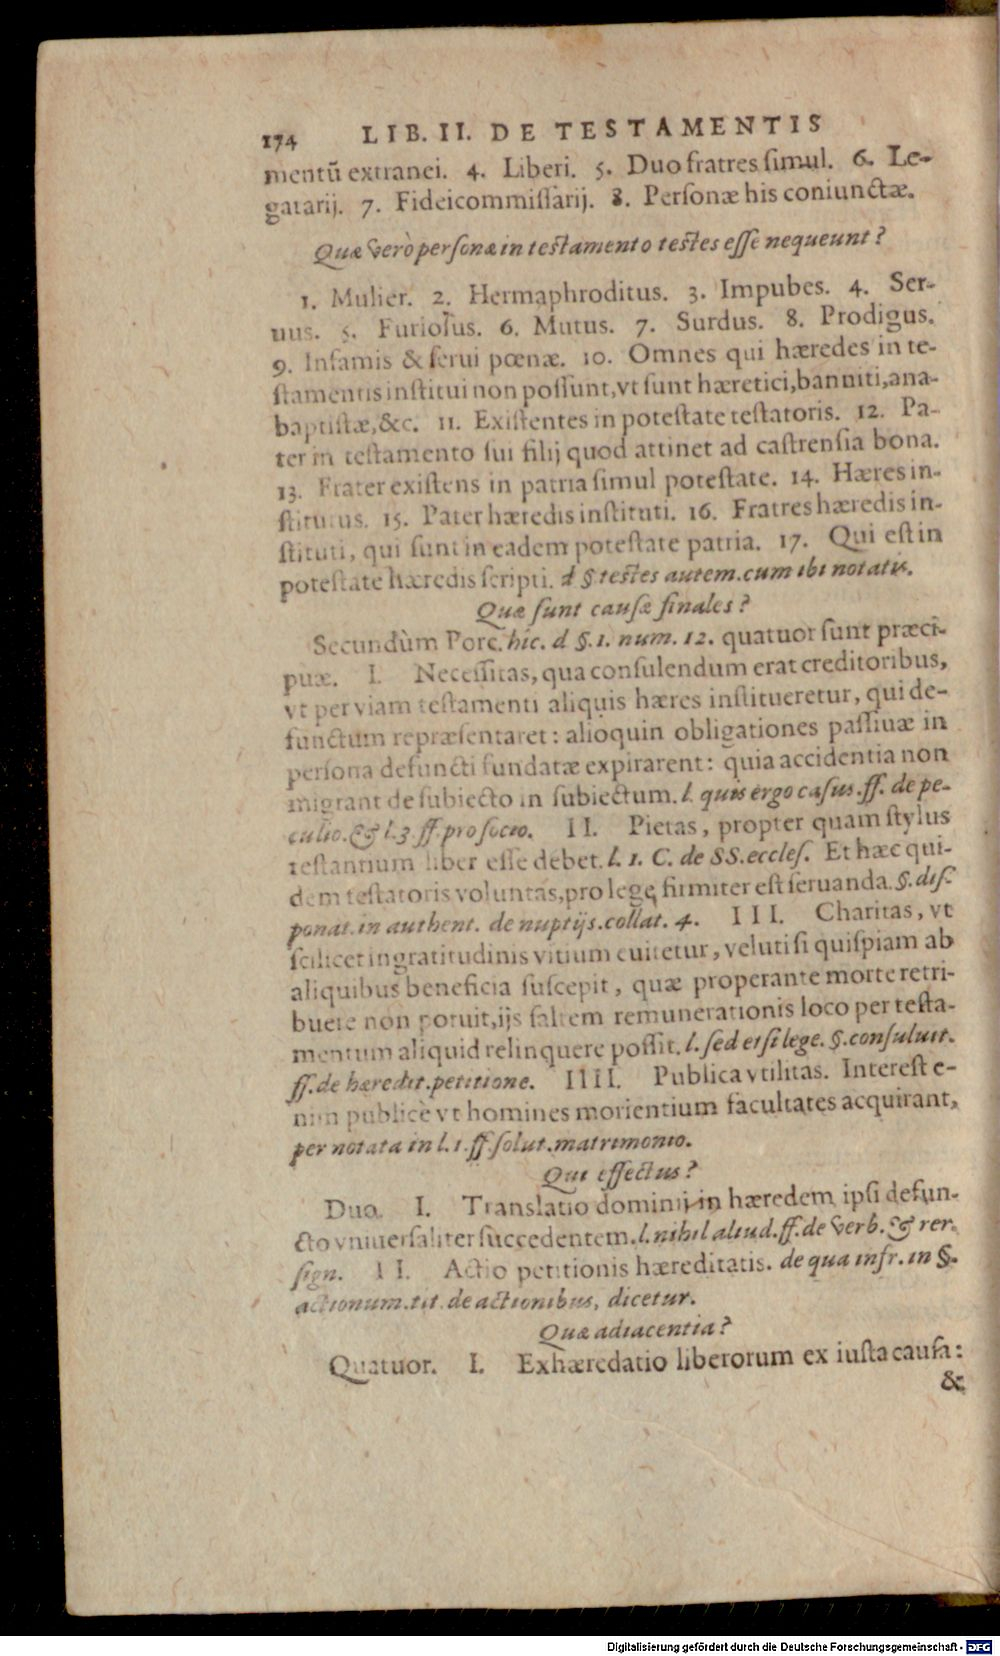 174 LIB. II. DE TESTAMENTIS
mentũ extranei. 4. Liberi. 5. Duo fratres ſimul. 6. Le-
gatarij. 7. Fideicommiſſarij. 8. Perſonæ his coniunctæ.
Quæ verò perſonæ in teſtamento teſtes eſſe nequeunt?
1. Mulier. 2. Hermaphroditus. 3. Impubes. 4. Ser-
uus. 5. Furioſus. 6. Mutus. 7. Surdus. 8. Prodigus.
9. Infamis & ſerui pœnæ. 10. Omnes qui hæredes in te-
ſtamentis inſtitui non poſſunt, vt ſunt hæretici, banniti, ana-
baptiſtæ, &c. 11. Exiſtentes in poteſtate teſtatoris. 12. Pa-
ter in teſtamento ſui filij quod attinet ad caſtrenſia bona.
13. Frater exiſtens in patria ſimul poteſtate. 14. Hæres in-
ſtitutus. 15. Pater hæredis inſtituti. 16. Fratres hæredis in-
ſtituti, qui ſunt in eadem poteſtate patria. 17. Qui eſt in
poteſtate hæredis ſcripti. d §. teſtes autem. cum ibi notatis.
Quæ ſunt cauſæ finales?
Secundùm Porc. hic. d §. 1. num. 12. quatuor ſunt præci-
puæ. I. Neceſſitas, qua conſulendum erat creditoribus,
vt per viam teſtamenti aliquis hæres inſtitueretur, qui de-
functum repræſentaret: alioquin obligationes paſſiuæ in
perſona defuncti fundatæ expirarent: quia accidentia non
migrant de ſubiecto in ſubiectum. l. quis ergo caſus. ff. de pe-
culio. & l. 3. ff. pro ſocio. II. Pietas, propter quam ſtylus
teſtantium liber eſſe debet. l. 1. C. de SS. eccleſ. Et hæc qui-
dem teſtatoris voluntas, pro lege firmiter eſt ſeruanda. §. diſ-
ponat. in authent. de nuptijs. collat. 4. III. Charitas, vt
ſcilicet ingratitudinis vitium euitetur, veluti ſi quiſpiam ab
aliquibus beneficia ſuſcepit, quæ properante morte retri-
buere non potuit, ijs ſaltem remunerationis loco per teſta-
mentum aliquid relinquere poſſit. l. ſed etſi lege. §. conſuluit.
ff. de hæredit. petitione. IIII. Publica vtilitas. Intereſt e-
nim publicè vt homines morientium facultates acquirant,
per notata in l. 1. ff. ſolut. matrimonio.
Qui effectus?
Duo. I. Translatio dominij in hæredem ipſi defun-
cto vniuerſaliter ſuccedentem. l. nihil aliud. ff. de verb. & rer.
ſign. II. Actio petitionis hæreditatis. de qua infr. in §.
actionum. tit. de actionibus, dicetur.
Quæ adiacentia?
Quatuor. I. Exhæredatio liberorum ex iuſta cauſa:
&
Digitalisierung gefördert durch die Deutsche Forschungsgemeinschaft - DFG